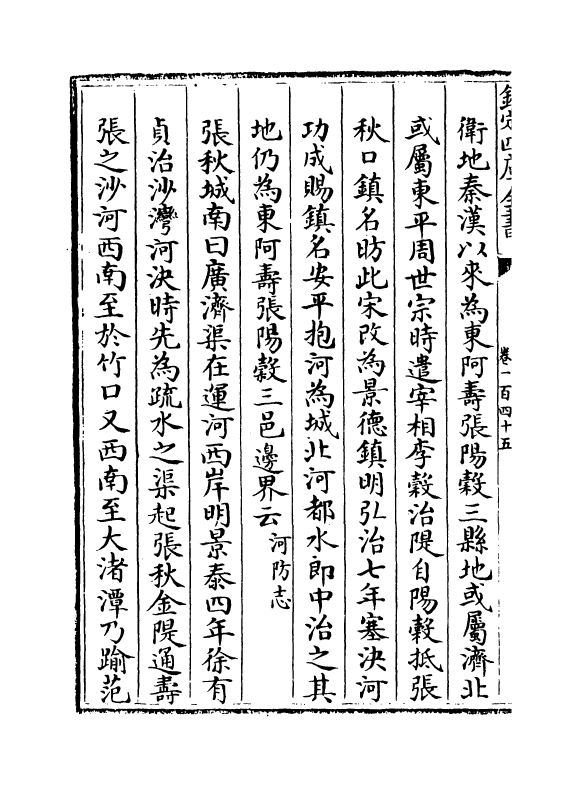 欽定四庫全書
卷一百四十五
衛地秦漢以來為東阿壽張陽穀三縣地或屬濟北
或屬東平周世宗時遣宰相李穀治隄自陽穀抵張
秋口鎮名昉此宋改為景德鎮明弘治七年塞決河
功成賜鎮名安平抱河為城北河都水郎中治之其
地仍為東阿壽張陽穀三邑邊界云河防志
張秋城南曰廣濟渠在運河西岸明景泰四年徐有
貞治沙灣河決時先為疏水之渠起張秋金隄通壽
張之沙河西南至於竹口又西南至大渚潭乃踰范